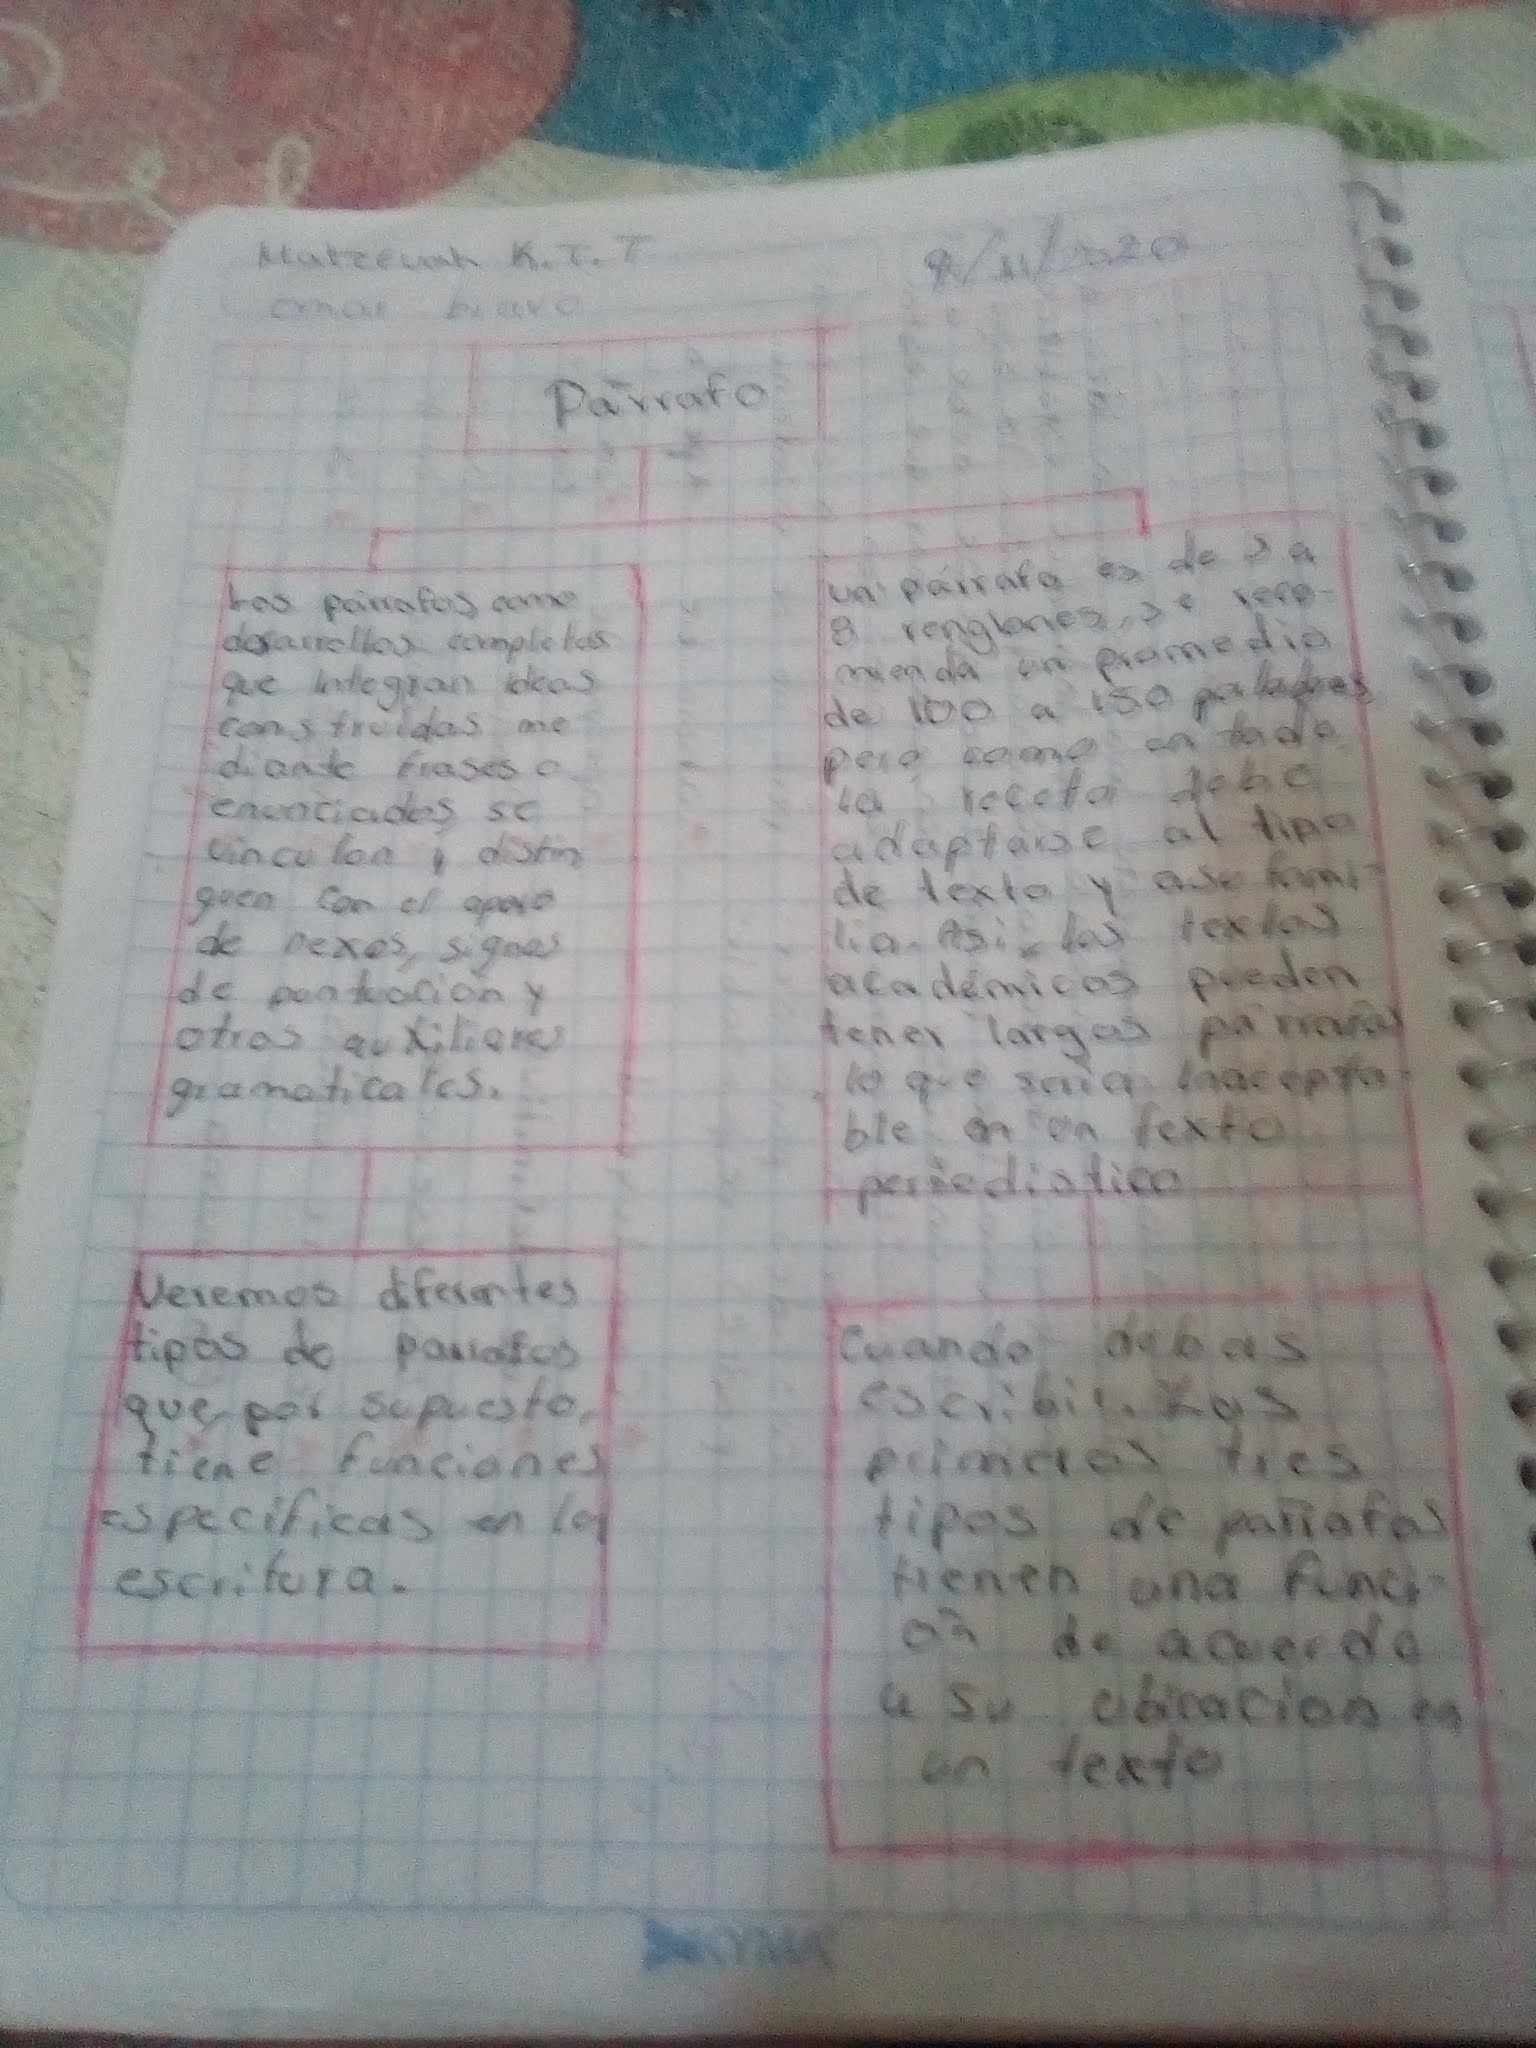 K.T.T
/11/2020
omar bravo
Párrafo
Los párrafos como
desarrollos completos
que integran ideas
construidas me
diante frases o
enunciados, se
vinculan y distin
guen con el apoyo
de nexos, signos
de puntuación y
otros auxiliares
gramaticales.
un párrafo es de 5 a
8 renglones, se reco-
mienda un promedio
de 100 a 150 palabras
pero como en todo
la receta debe
adaptarse al tipo
de texto y a su fami-
lia. Así, los textos
académicos pueden
tener largos párrafos
lo que sería inacepta-
ble en un texto
periodistico
Veremos diferentes
tipos de parrafos
que, por supuesto,
tiene funciones
especificas en la
escritura.
Cuando debas
escribir. Los
primeros tres
tipos de parrafos
tienen una funci-
on de acuerdo
a su ubicacion en
un texto